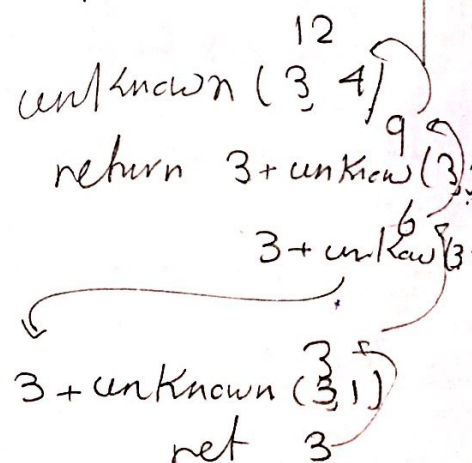 12
unknown (3, 4)
9
return 3 + unknow (3,
6
3 + unkow (3
3
3 + unknown (3, 1)
ret 3